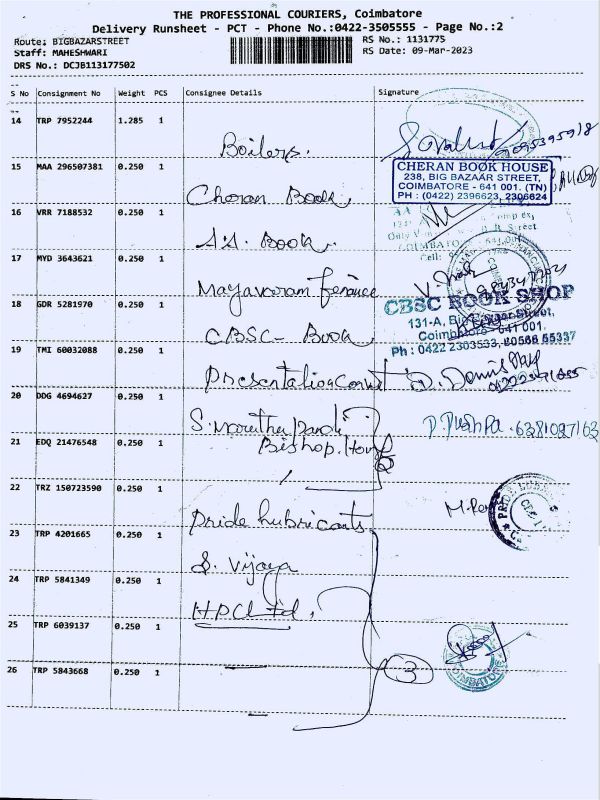 THE PROFESSIONAL COURIERS, Coimbatore
Delivery Runsheet - PCT - Phone No.:0422-3505555 - Page No.:2
Route: BIGBAZARSTREET RS No.: 1131775
Staff: MAHESHWARI RS Date: 09-Mar-2023
DRS No.: DCJB113177502
S No Consignment No Weight PCS Consignee Details Signature
14 TRP 7952244 1.285 1
Boilers.
15 MAA 296507381 0.250 1
CHERAN BOOK HOUSE
238, BIG BAZAAR STREET,
COIMBATORE - 641 001. (TN)
PH : (0422) 2396623, 2306624
Cheran Book
16 VRR 7188532 0.250 1
A.A. Book
17 MYD 3643621 0.250 1
Mayavaram finance
18 GDR 5281970 0.250 1
CBSC BOOK SHOP
131-A, Big Bazaar Street,
Coimbatore - 641 001.
Ph : 0422 2303533, 80566 55337
CBSC - Book
19 TMI 60032088 0.250 1
Presentation Convent
20 DDG 4694627 0.250 1
S.
21 EDQ 21476548 0.250 1
Bishop House
D. Pushpa. 6381027163
22 TRZ 150723590 0.250 1
Pride Lubricants
23 TRP 4201665 0.250 1
S. Vijaya
24 TRP 5841349 0.250 1
HPCL Ltd,
25 TRP 6039137 0.250 1
26 TRP 5843668 0.250 1
3